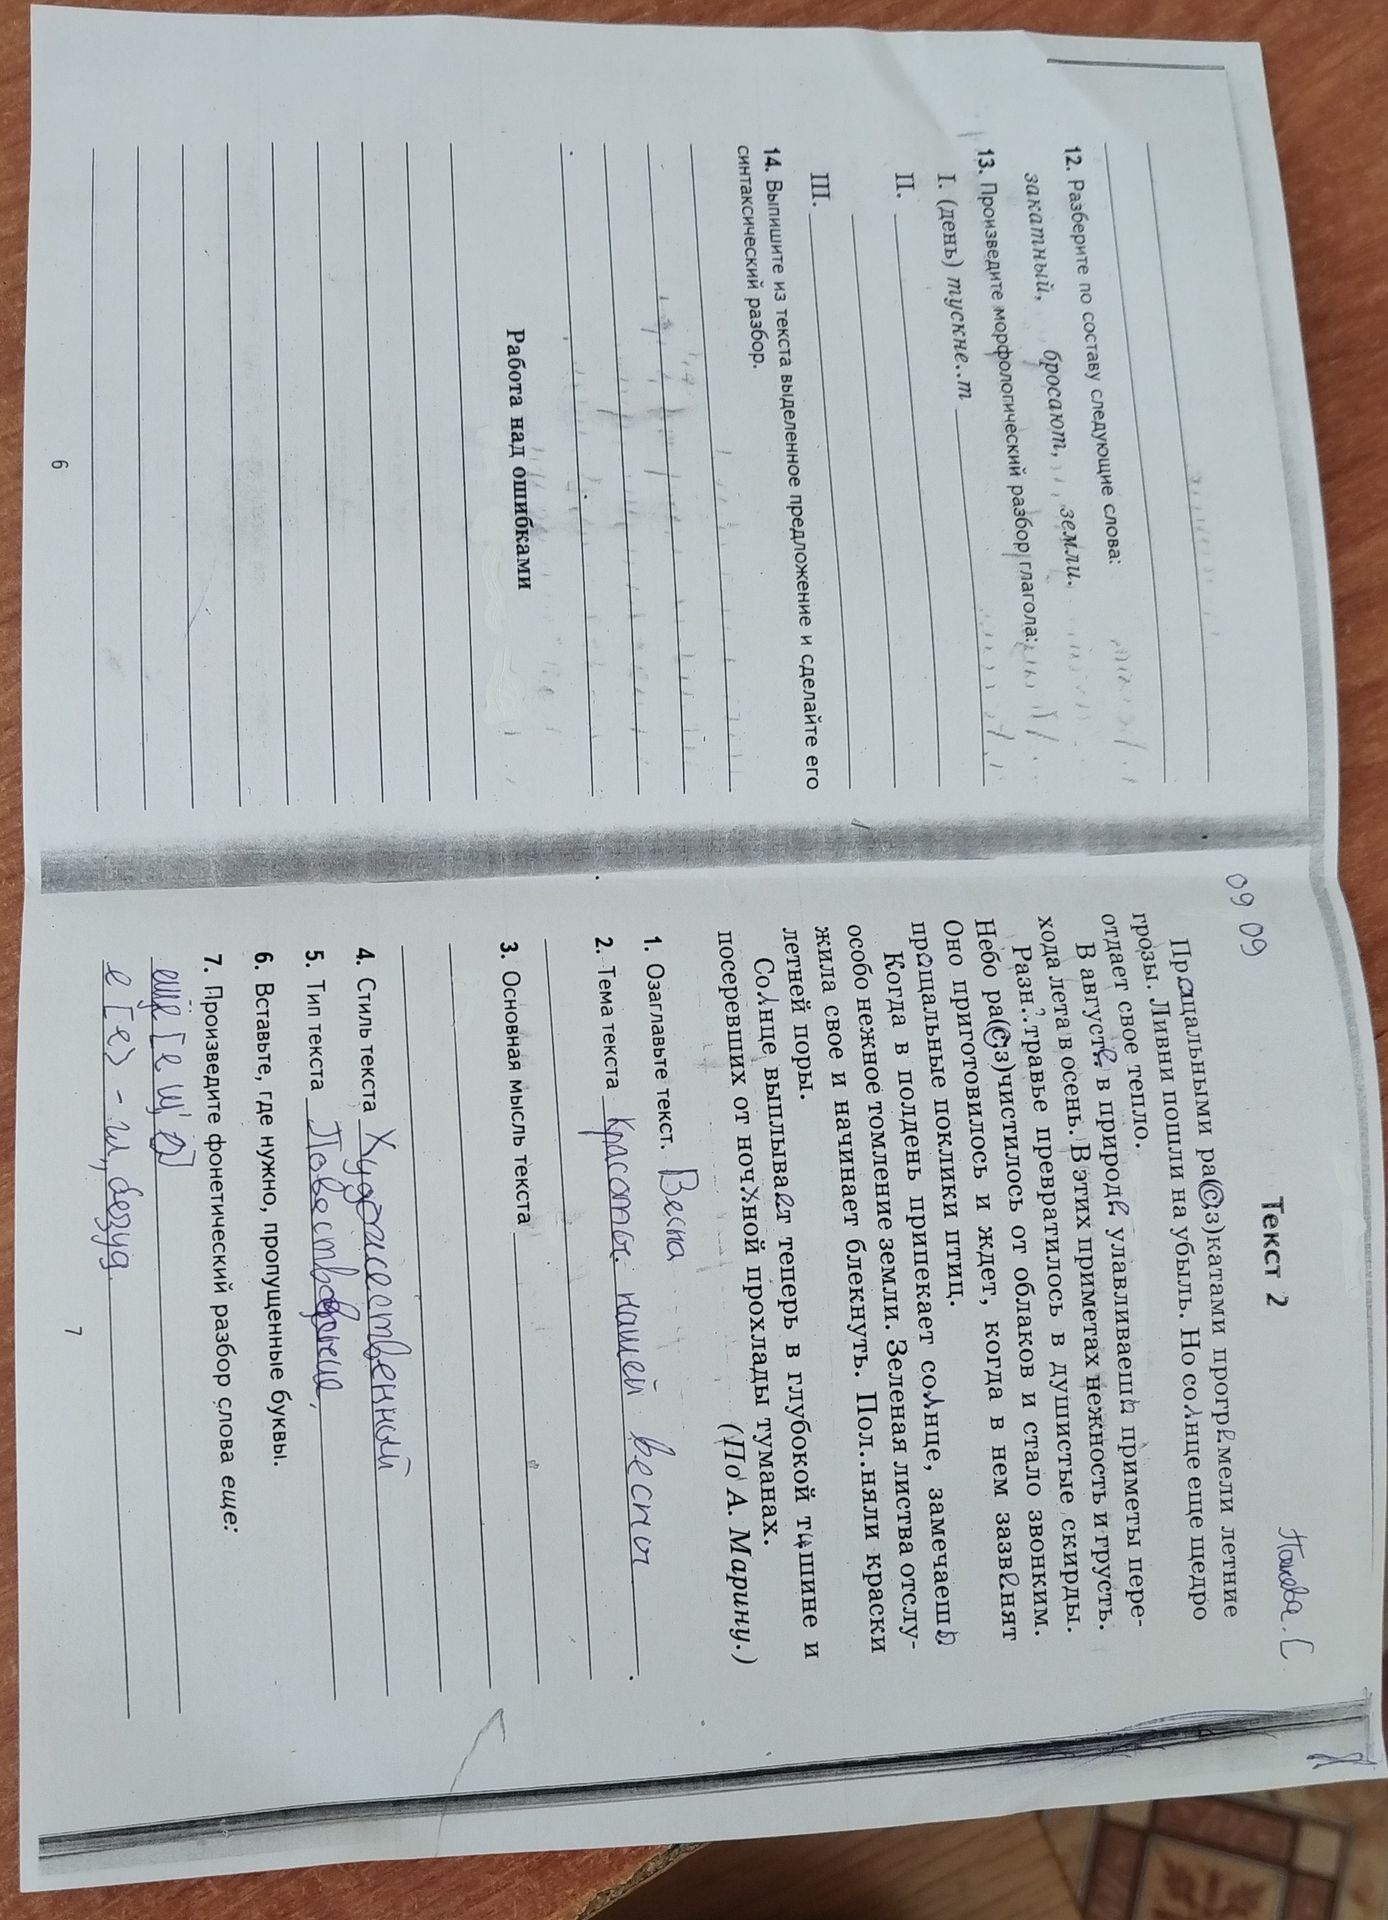 12. Разберите по составу следующие слова:
закатный, бросают, земли.
13. Произведите морфологический разбор глагола:
I. (день) тускне..т
II.
III.
14. Выпишите из текста выделенное предложение и сделайте его
синтаксический разбор.
Работа над ошибками
6
09 09
Текст 2
Прощальными ра(с,з)катами прогремели летние
грозы. Ливни пошли на убыль. Но солнце еще щедро
отдает свое тепло.
В августе в природе улавливаешь приметы пере-
хода лета в осень. В этих приметах нежность и грусть.
Разн..травье превратилось в душистые скирды.
Небо ра(с,з)чистилось от облаков и стало звонким.
Оно приготовилось и ждет, когда в нем зазвенят
прощальные поклики птиц.
Когда в полдень припекает солнце, замечаешь
особо нежное томление земли. Зеленая листва отслу-
жила свое и начинает блекнуть. Пол..няли краски
летней поры.
Солнце выплывает теперь в глубокой тишине и
посеревших от ночной прохлады туманах.
(По А. Марину.)
1. Озаглавьте текст. Весна
2. Тема текста Красоты нашей весны.
3. Основная мысль текста
4. Стиль текста Художественный
5. Тип текста
6. Вставьте, где нужно, пропущенные буквы.
7. Произведите фонетический разбор слова еще:
7